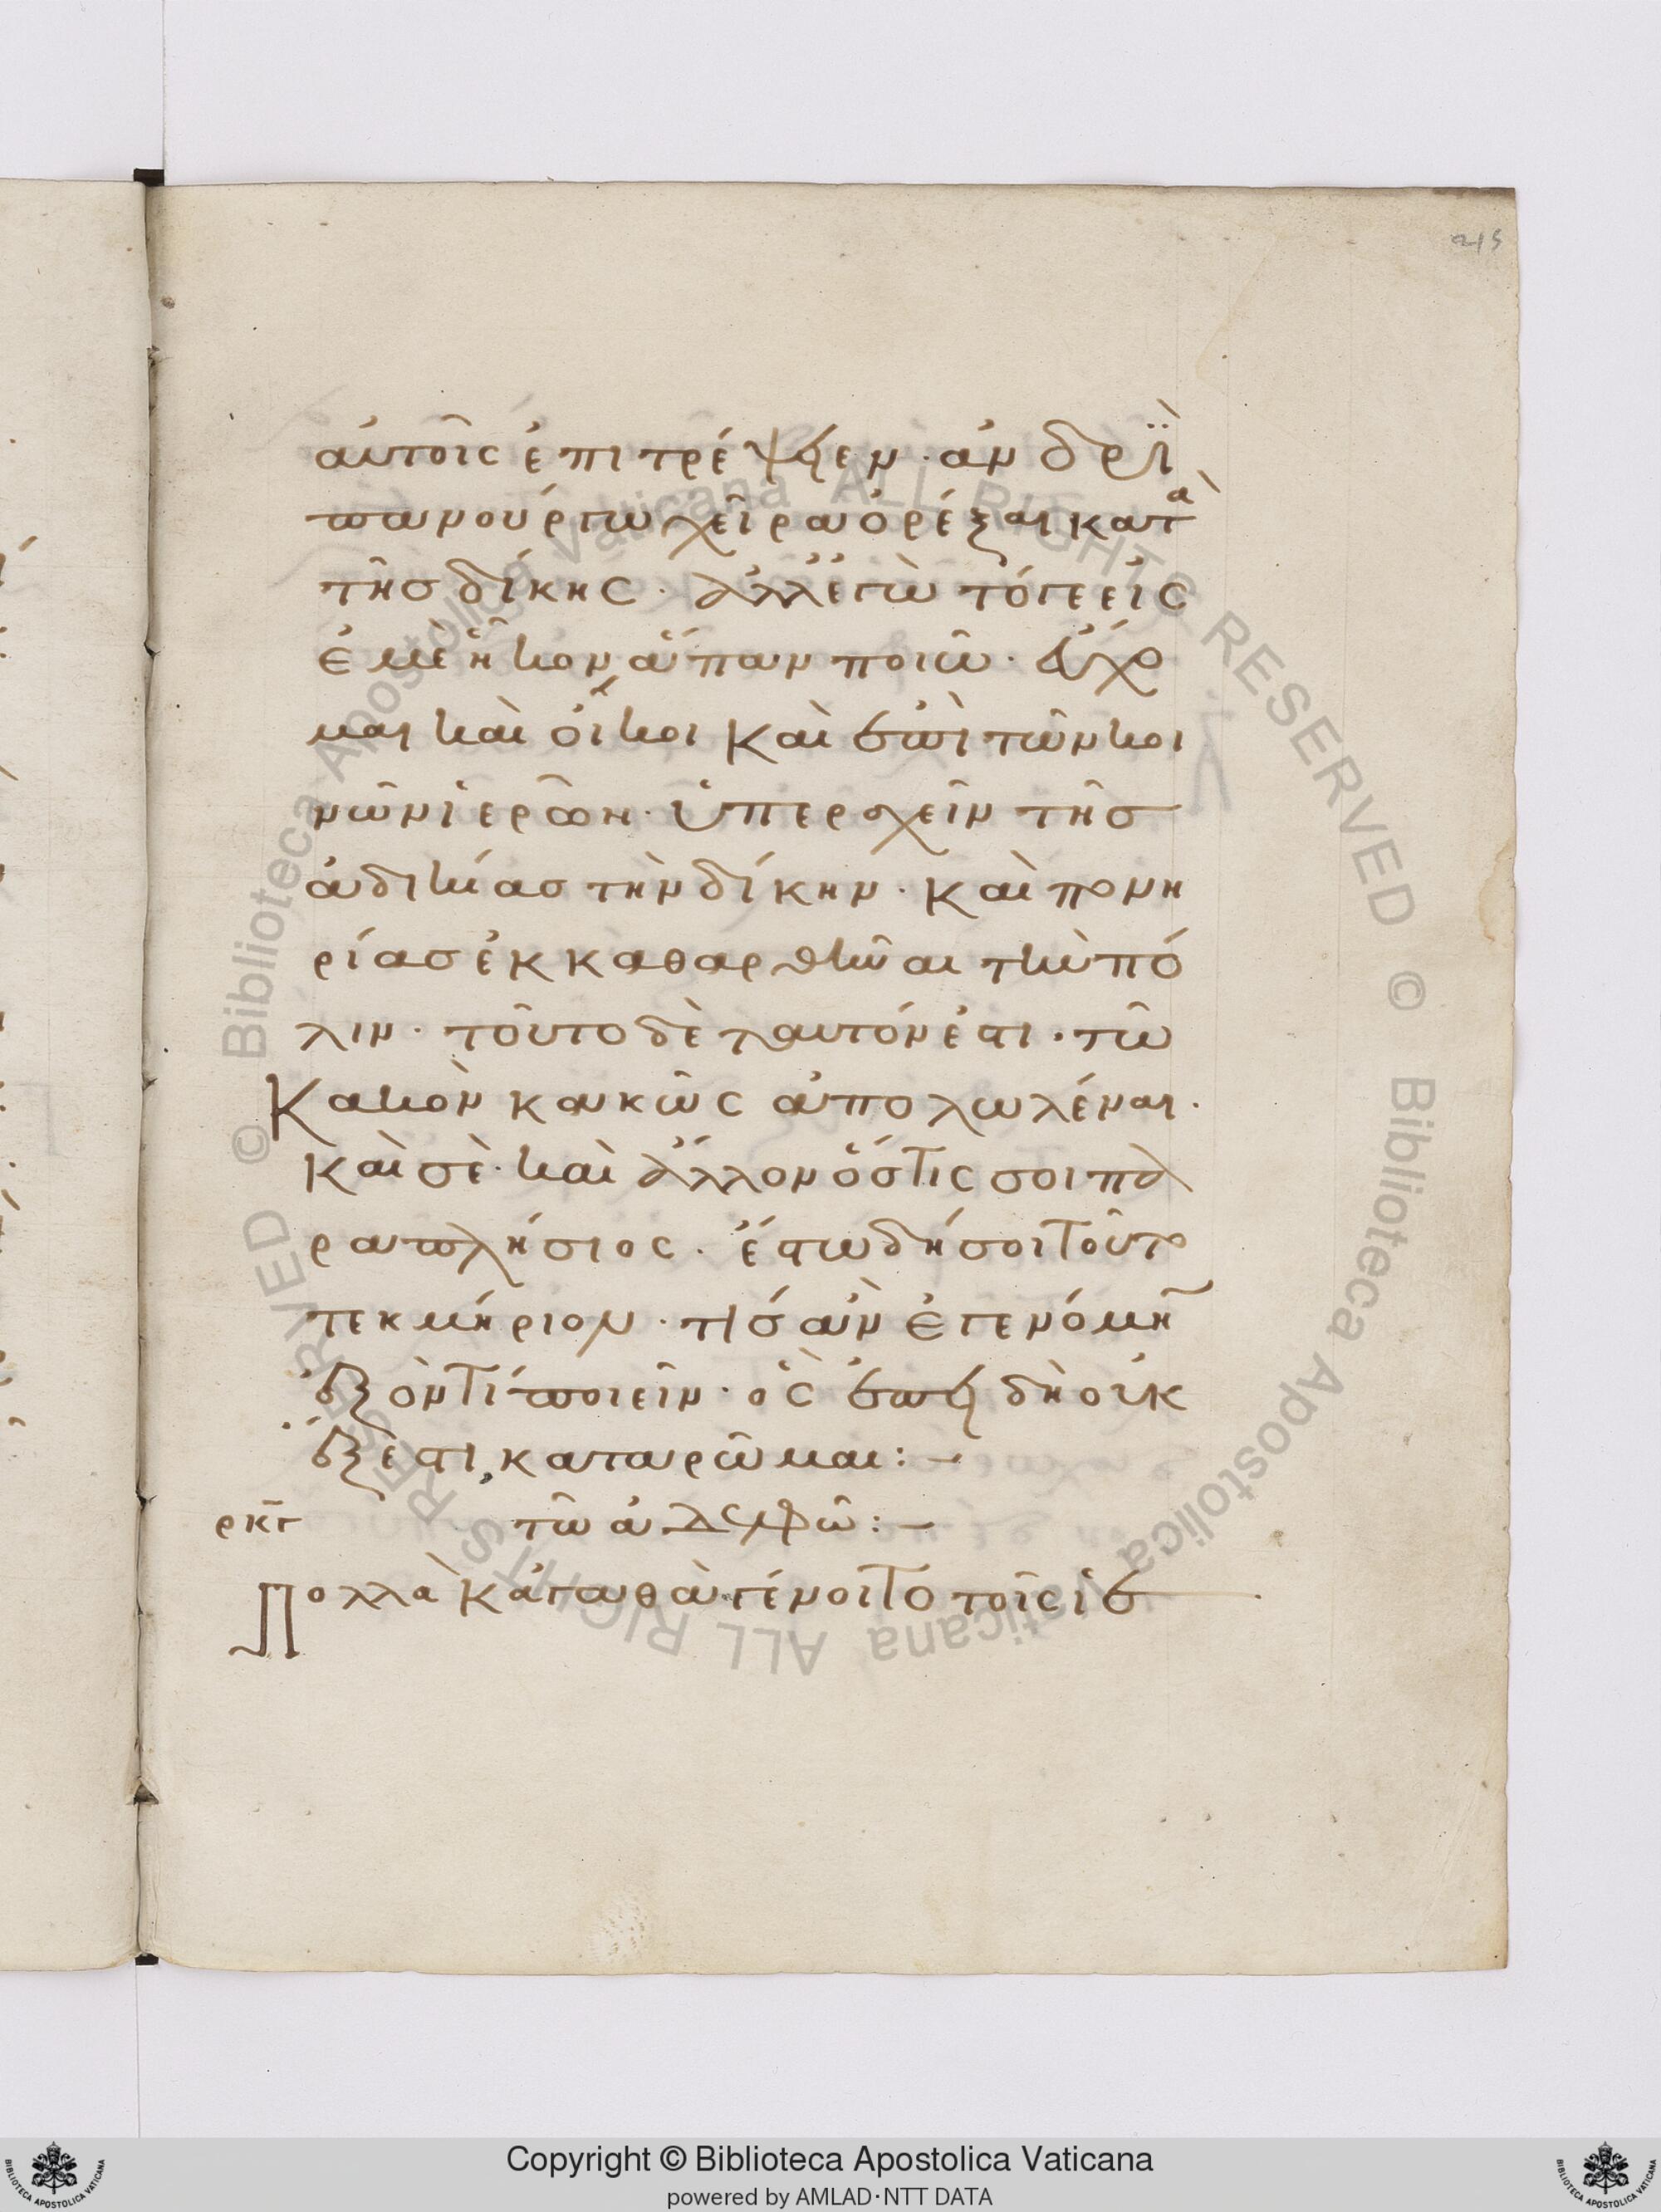 215
αὐτοῖς ἐπιτρέψειεν· ἀνδρὶ
πανούργω χεῖρα ὀρέξαι κατὰ
τῆς δίκης· ἀλλ' ἐγὼ τό γε εἰς
ἐμὲ ἧκον ἅπαν ποιῶ· εὔχο
μαι καὶ οἴκοι καὶ ἐπὶ τῶν κοι
νῶν ἱερῶν· ὑπερσχεῖν τῆς
ἀδικίας τὴν δίκην· καὶ πονη
ρίας ἐκκαθαρθῆναι τὴν πό
λιν· τοῦτο δὲ ταυτόν ἐστι· τῶ
κακὸν κακῶς ἀπολωλέναι·
καὶ σὲ· καὶ ἄλλον ὅστις σοι πα
ραπλήσιος· ἔστω δή σοι τοῦτο
τεκμήριον· τίς ἂν ἐγενόμην
ἐξόν τι ποιεῖν· ὃς ἐπεὶ δὴ οὐκ
ἔξεστι, καταρῶμαι:-
ρκγ τῶ ἀδελφῶ:-
Πολλὰ κἀγαθὰ γένοιτο τοῖς ἱε
Copyright © Biblioteca Apostolica Vaticana
powered by AMLAD·NTT DATA
© Biblioteca Apostolica Vaticana ALL RIGHTS RESERVED © Biblioteca Apostolica Vaticana ALL RIGHTS RESERVED
BIBLIOTECA APOSTOLICA VATICANA
BIBLIOTECA APOSTOLICA VATICANA